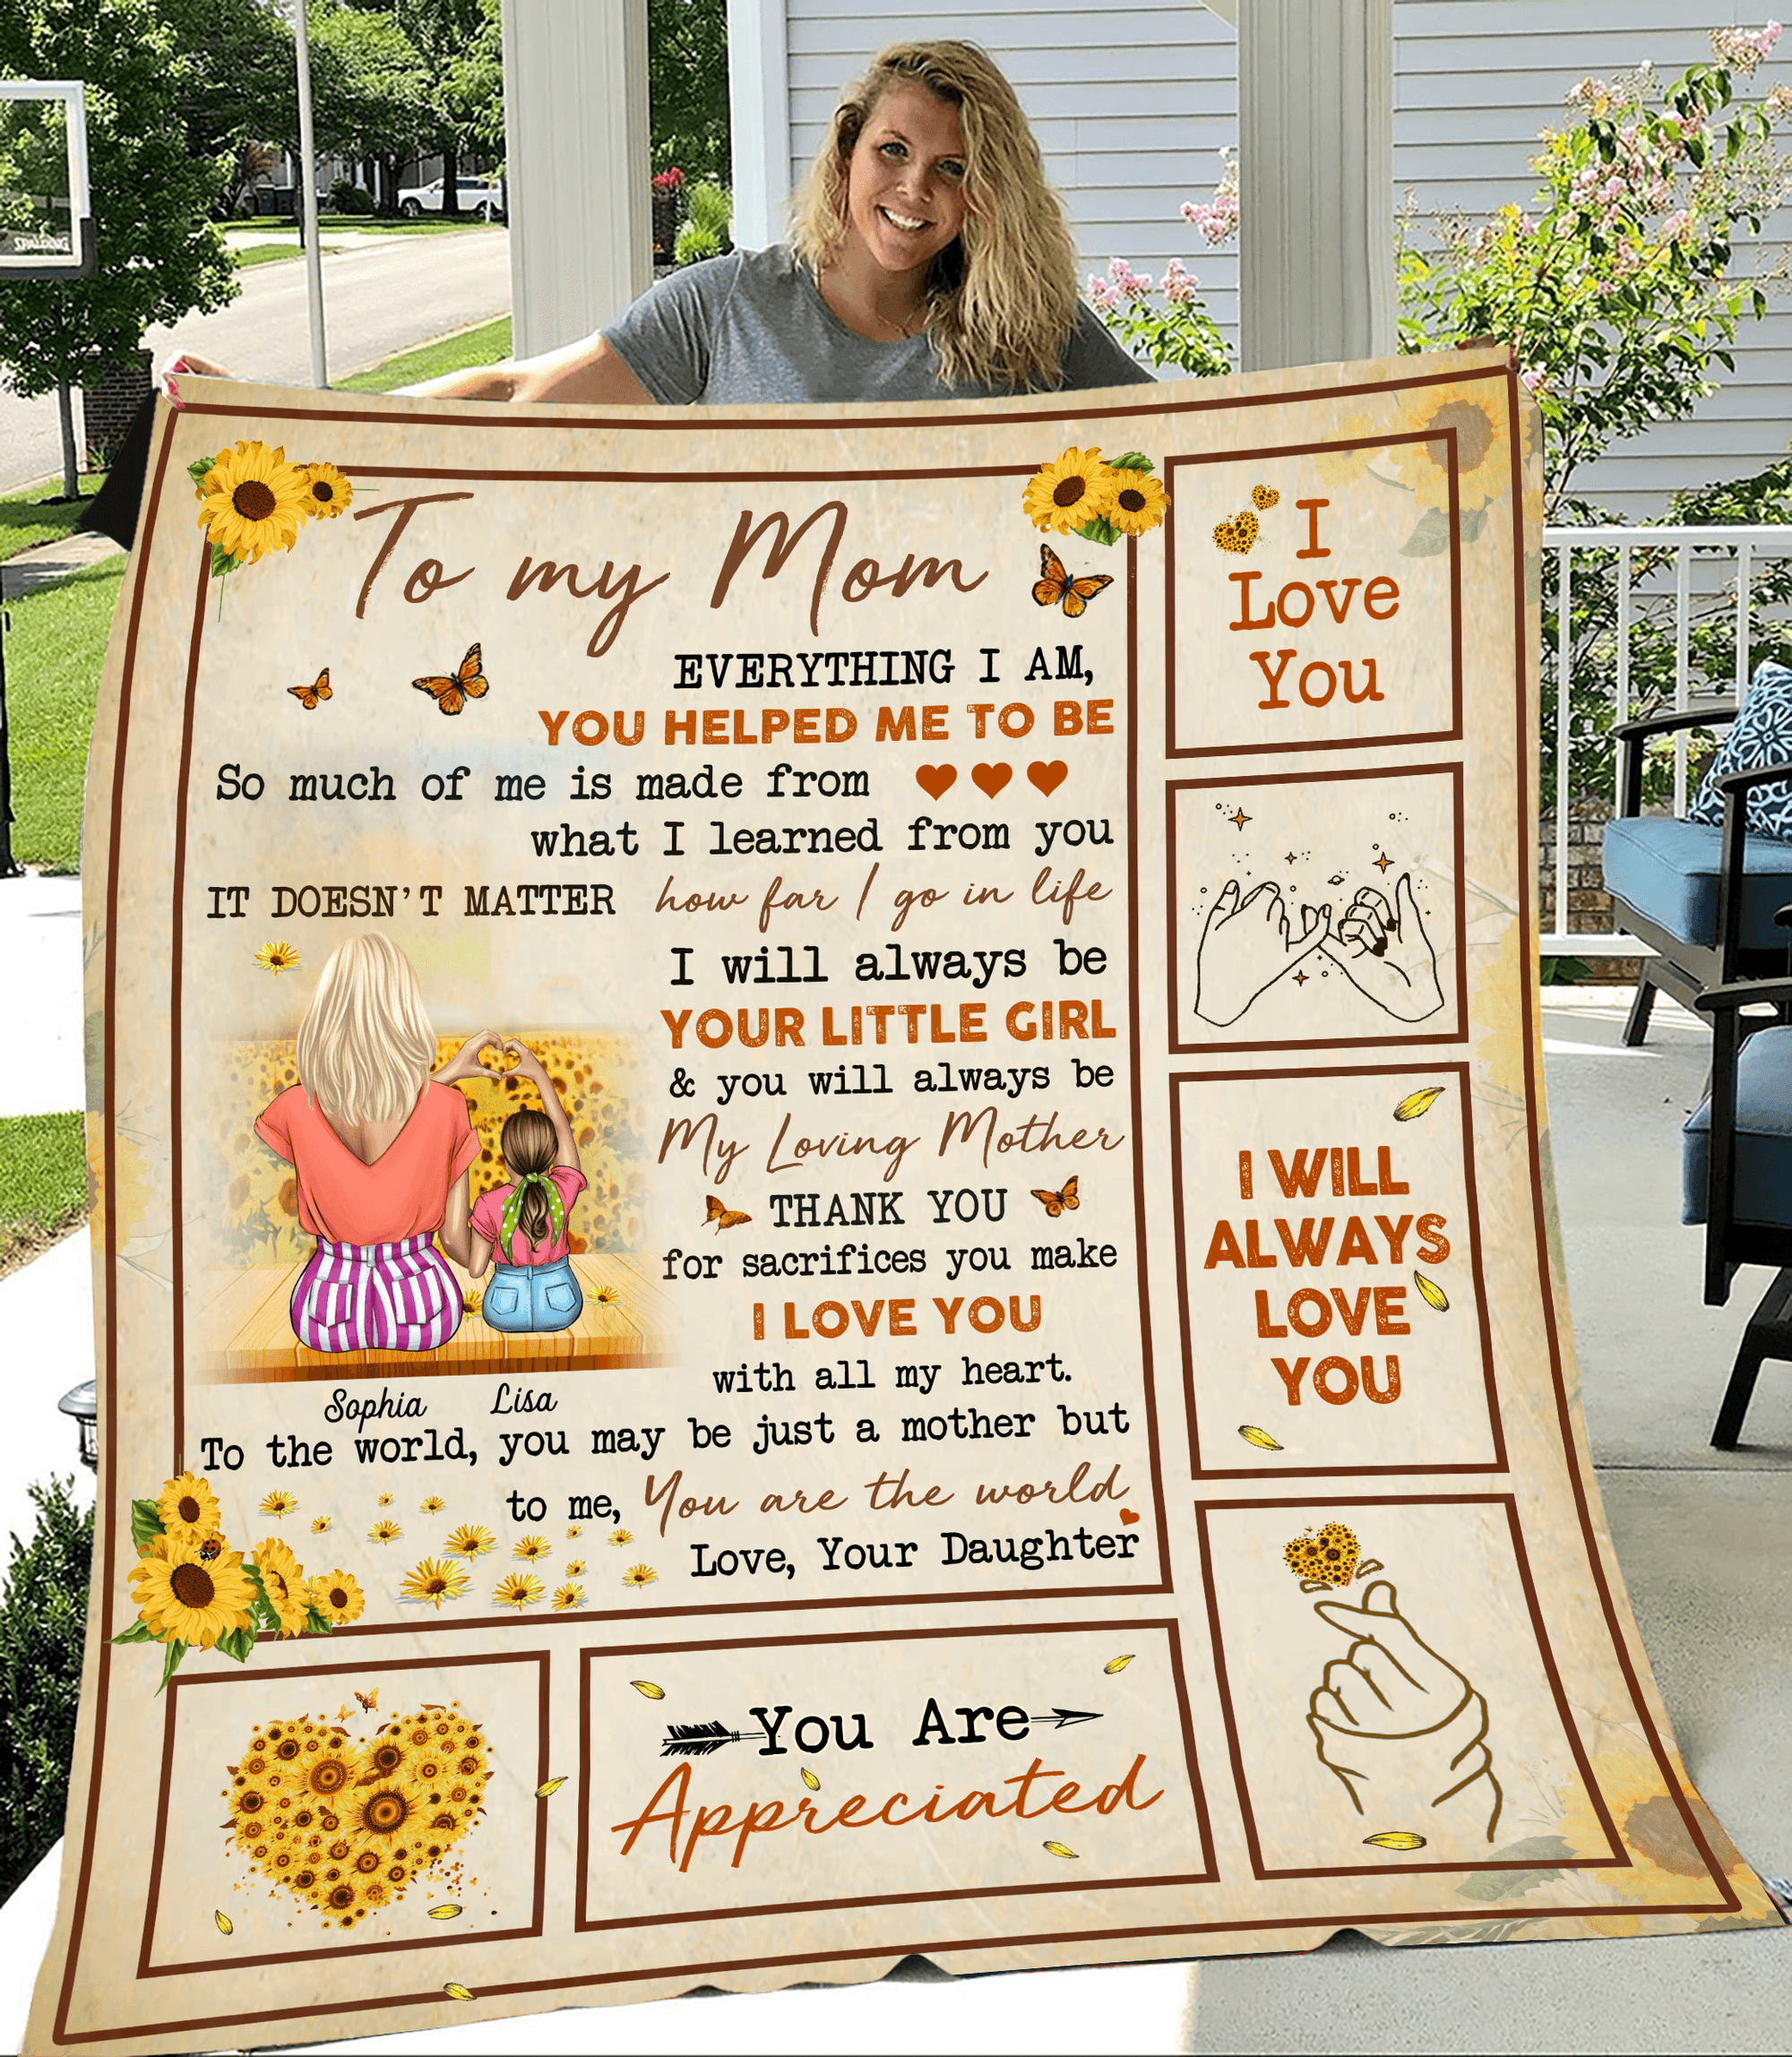 SPALDING
To my Mom
EVERYTHING I AM,
YOU HELPED ME TO BE
So much of me is made from
what I learned from you
IT DOESN'T MATTER how far I go in life
I will always be
YOUR LITTLE GIRL
& you will always be
My Loving Mother
THANK YOU
for sacrifices you make
I LOVE YOU
with all my heart.
Sophia Lisa
To the world, you may be just a mother but
to me, You are the world
Love, Your Daughter
I
Love
You
I WILL
ALWAYS
LOVE
YOU
You Are
Appreciated